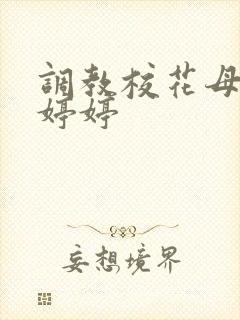 調教校花母
婷婷
妄想境界